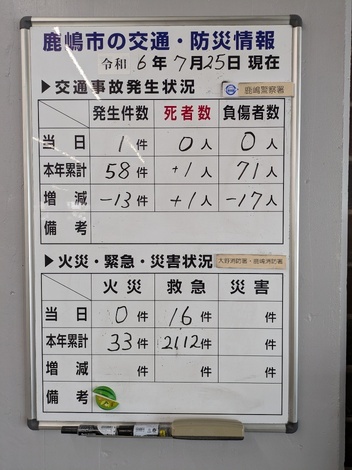 鹿嶋市の交通・防災情報
令和 6 年 7 月 25 日 現在
▶交通事故発生状況 鹿嶋警察署
発生件数 死者数 負傷者数
当日 1 件 0 人 0 人
本年累計 58 件 +1 人 71 人
増減 -13 件 +1 人 -17 人
備考
▶火災・緊急・災害状況 大野消防署・鹿嶋消防署
火災 救急 災害
当日 0 件 16 件 件
本年累計 33 件 2112 件 件
増減 件 件 件
備考